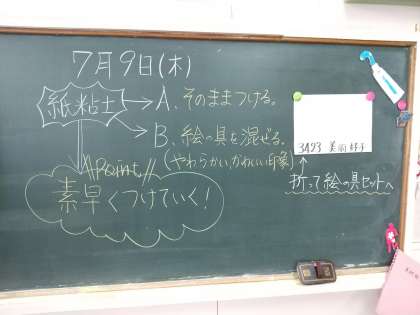 7月9日(木)
紙粘土
A、そのままつける。
B、絵の具を混ぜる。
(やわらかい、かわいい印象)
Point
素早くつけていく!
3423 美術
折って絵の具セットへ